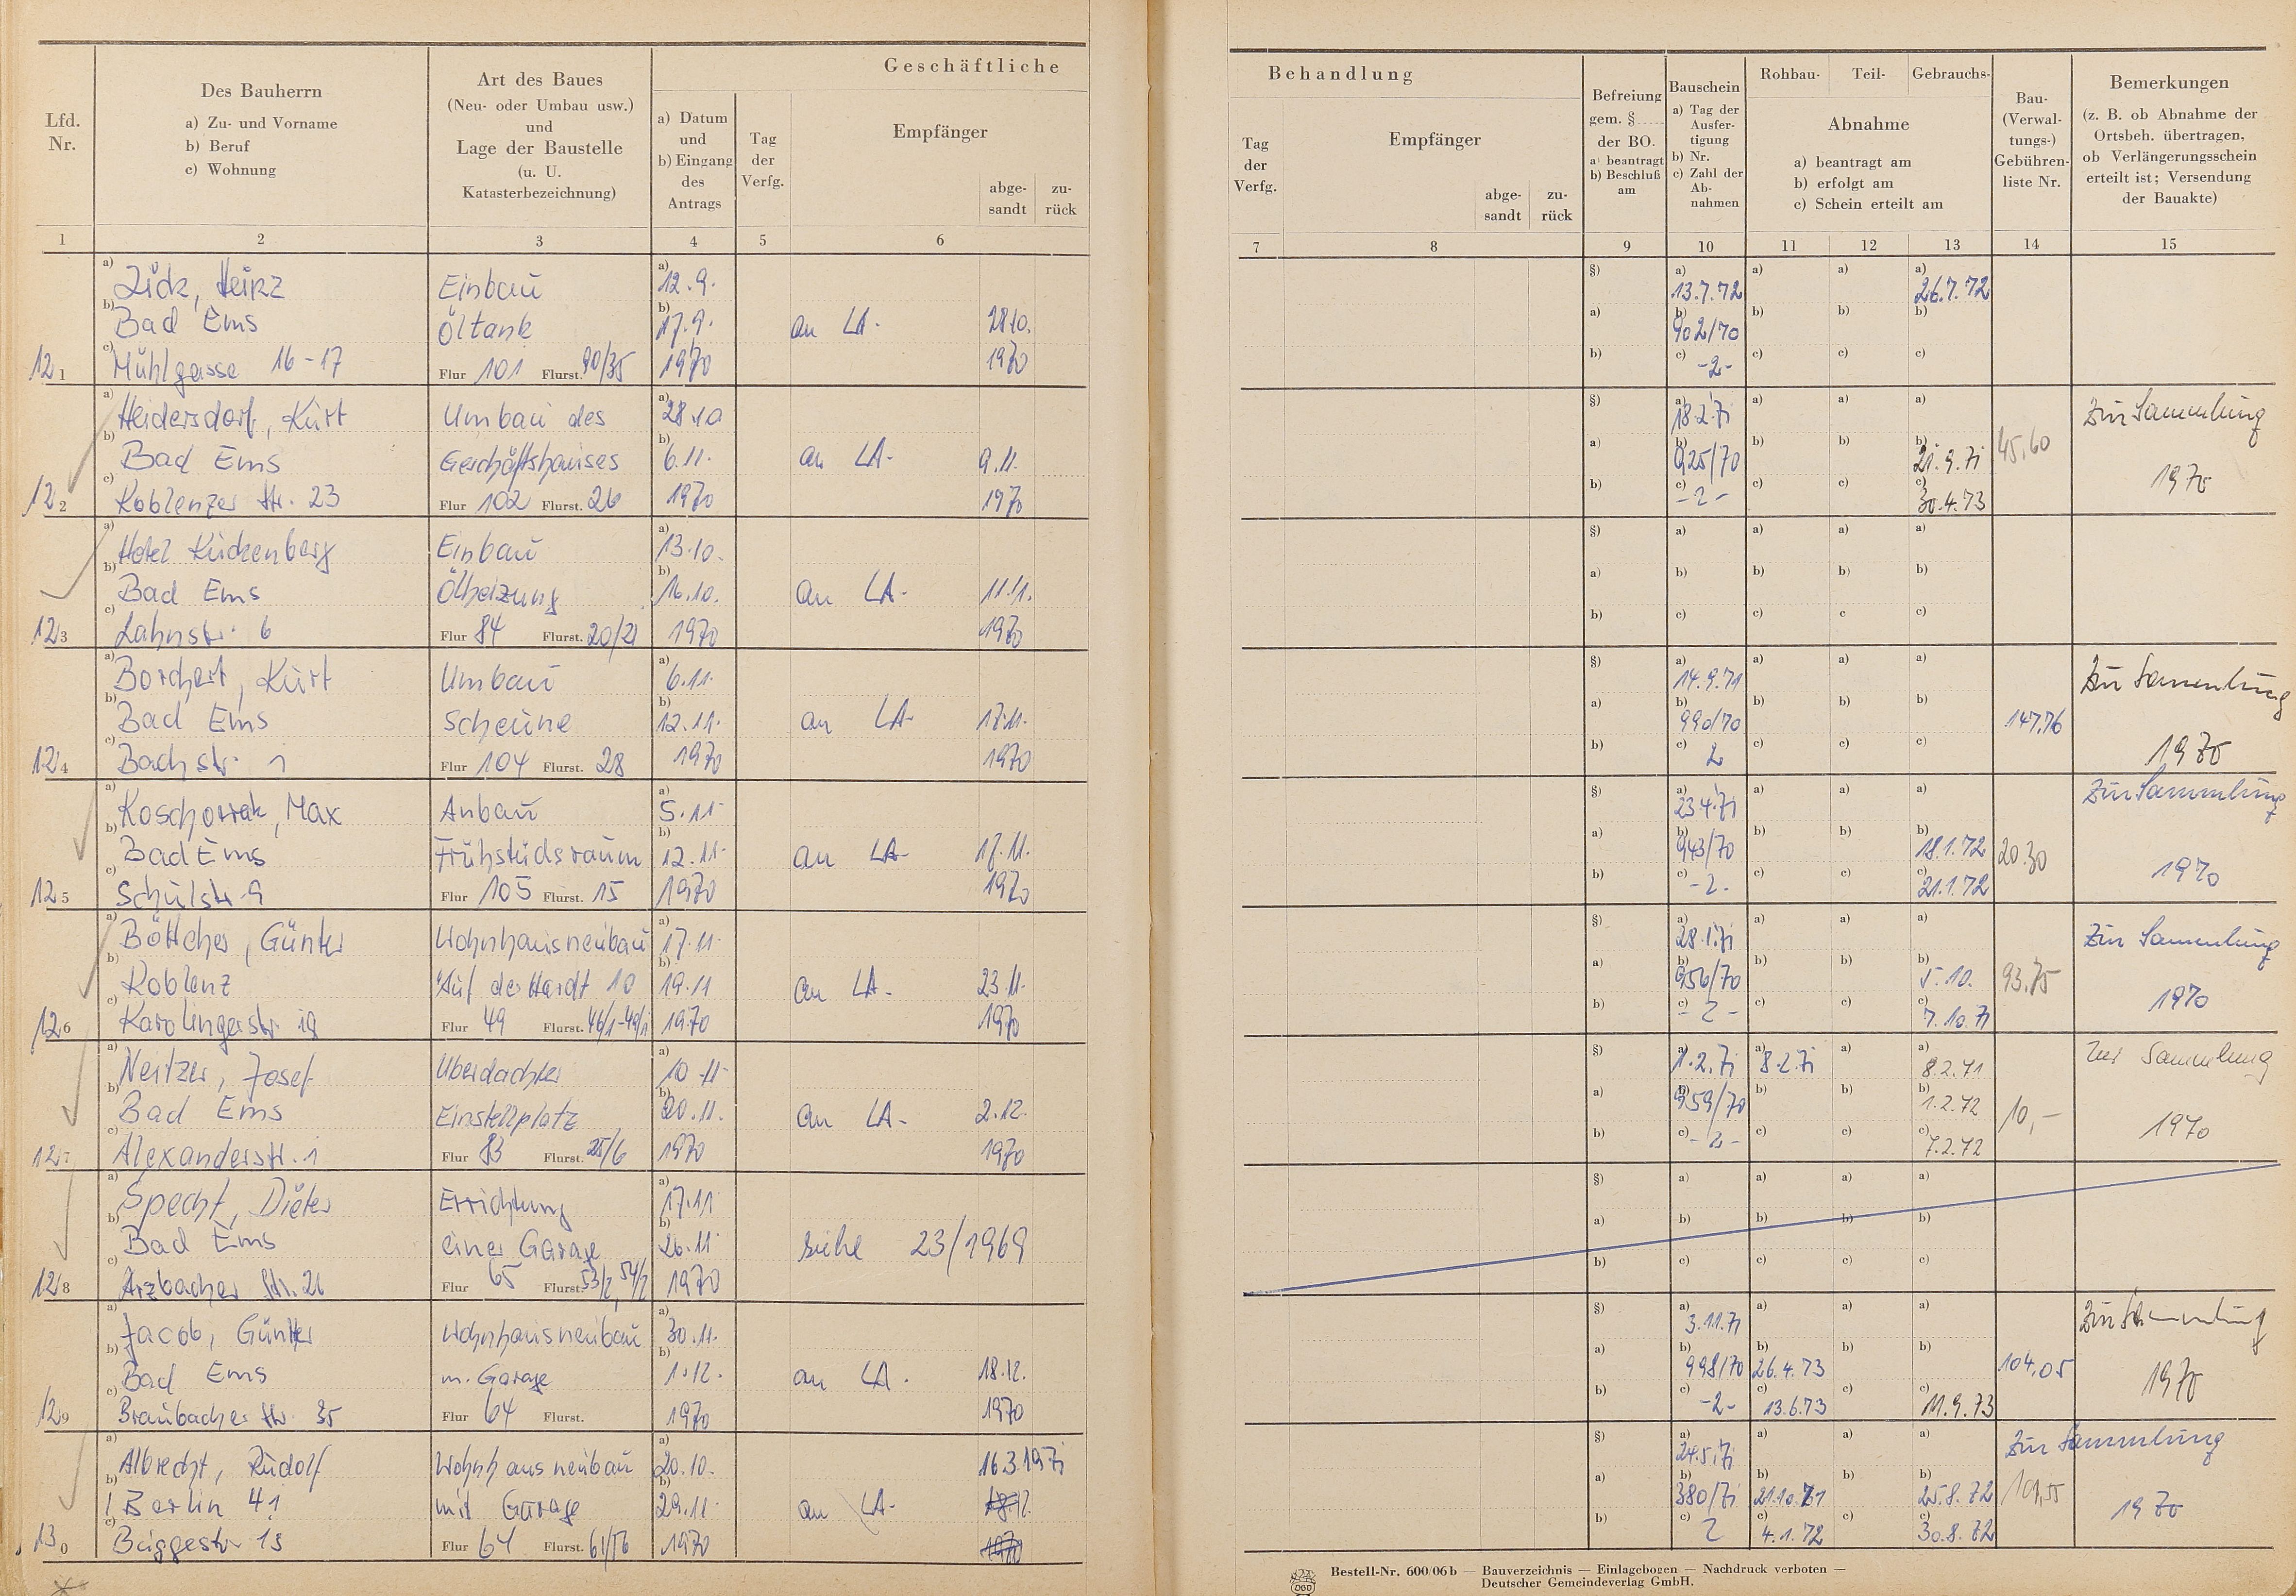 Geschäftliche
Lfd.
Nr.
Des Bauherrn
a) Zu- und Vorname
b) Beruf
c) Wohnung
Art des Baues
(Neu- oder Umbau usw.)
und
Lage der Baustelle
(u. U.
Katasterbezeichnung)
a) Datum
und
b) Eingang
des
Antrags
Tag
der
Verfg.
Empfänger
abge-
sandt
zu-
rück
1 2 3 4 5 6
a) Zick, Heinz Einbau a) 12.9.
b) Bad Ems Öltank b) 17.9. an LA. 28.10.
121 c) Mühlgasse 16-17 Flur 101 Flurst. 90/35 1970 1970
a) Heidersdorf, Kurt Umbau des a) 28.10
b) Bad Ems Geschäftshauses b) 6.11. an LA. 9.11.
122 c) Koblenzer Str. 23 Flur 102 Flurst. 26 1970 1970
a) Hotel Kückenberg Einbau a) 13.10.
b) Bad Ems Ölheizung b) 16.10. an LA. 11.11.
123 c) Lahnstr. 6 Flur 84 Flurst. 20/21 1970 1970
a) Borchert, Kurt Umbau a) 6.11.
b) Bad Ems Scheune b) 12.11. an LA. 17.11.
124 c) Bachstr. 1 Flur 104 Flurst. 28 1970 1970
a) Koschorrek, Max Anbau a) 5.11
b) Bad Ems Frühstücksraum b) 12.11. an LA. 17.11.
125 c) Schulstr. 9 Flur 105 Flurst. 15 1970 1970
a) Böttcher, Günter Wohnhausneubau a) 17.11.
b) Koblenz Auf der Hardt 10 b) 19.11 an LA. 23.11.
126 c) Karolingerstr. 19 Flur 49 Flurst. 46/1-49/1 1970 1970
a) Neitzer, Josef Überdachter a) 10.11.
b) Bad Ems Einstellplatz b) 20.11. an LA. 2.12.
127 c) Alexanderstr. 1 Flur 83 Flurst. 25/6 1970 1970
a) Specht, Dieter Errichtung a) 17.11
b) Bad Ems einer Garage b) 26.11. siehe 23/1969
128 c) Arzbacher Str. 21 Flur 65 Flurst. 53/2, 54/2 1970
a) Jacob, Günter Wohnhausneubau a) 30.11.
b) Bad Ems m. Garage b) 1.12. an LA. 18.12.
129 c) Braubacher Str. 35 Flur 64 Flurst. 1970 1970
a) Albrecht, Rudolf Wohnhausneubau a) 20.10. 16.3.1971
b) Berlin 41 mit Garage b) 29.11. an LA. 18.12.
130 c) Flur 64 Flurst. 61/56 1970 1970
Behandlung
Tag
der
Verfg.
Empfänger
abge-
sandt
zu-
rück
Befreiung
gem. §
der BO.
a) beantragt
b) Beschluß
am
Bauschein
a) Tag der
Ausfer-
tigung
b) Nr.
c) Zahl der
Ab-
nahmen
Rohbau- Teil- Gebrauchs-
Abnahme
a) beantragt am
b) erfolgt am
c) Schein erteilt am
Bau-
(Verwal-
tungs-)
Gebühren-
liste Nr.
Bemerkungen
(z. B. ob Abnahme der
Ortsbeh. übertragen,
ob Verlängerungsschein
erteilt ist; Versendung
der Bauakte)
7 8 9 10 11 12 13 14 15
§) a) 13.7.72 a) a) a) 26.7.72
a) b) 902/70 b) b) b)
b) c) -2- c) c) c)
§) a) 18.2.71 a) a) a) Zur Sammlung
a) b) 925/70 b) b) b) 21.9.71 45,60
b) c) -2- c) c) c) 30.4.73 1970
§) a) a) a) a)
a) b) b) b) b)
b) c) c) c c)
§) a) 14.9.71 a) a) a) Zur Sammlung
a) b) 990/70 b) b) b) 147,76
b) c) 2 c) c) c) 1970
§) a) 23.4.71 a) a) a) Zur Sammlung
a) b) 943/70 b) b) b) 18.1.72 20.30
b) c) -2- c) c) c) 21.1.72 1970
§) a) 28.1.71 a) a) a) Zur Sammlung
a) b) 956/70 b) b) b) 5.10. 93.75
b) c) -2- c) c) c) 7.10.71 1970
§) a) 1.2.71 a) 8.2.71 a) a) 8.2.71 Zur Sammlung
a) b) 959/70 b) b) b) 1.2.72 10,-
b) c) -2- c) c) c) 7.2.72 1970
§) a) a) a) a)
a) b) b) b) b)
b) c) c) c) c)
§) a) 3.11.71 a) a) a) Zur Sammlung
a) b) 998/70 b) 26.4.73 b) b) 104,05
b) c) -2- c) 13.6.73 c) c) 11.9.73 1970
§) a) 24.5.71 a) a) a) Zur Sammlung
a) b) 380/71 b) 21.10.71 b) b) 25.8.72 109,55
b) c) 2 c) 4.1.72 c) c) 30.8.72 1970
Bestell-Nr. 600/06 b — Bauverzeichnis — Einlagebogen — Nachdruck verboten —
Deutscher Gemeindeverlag GmbH.